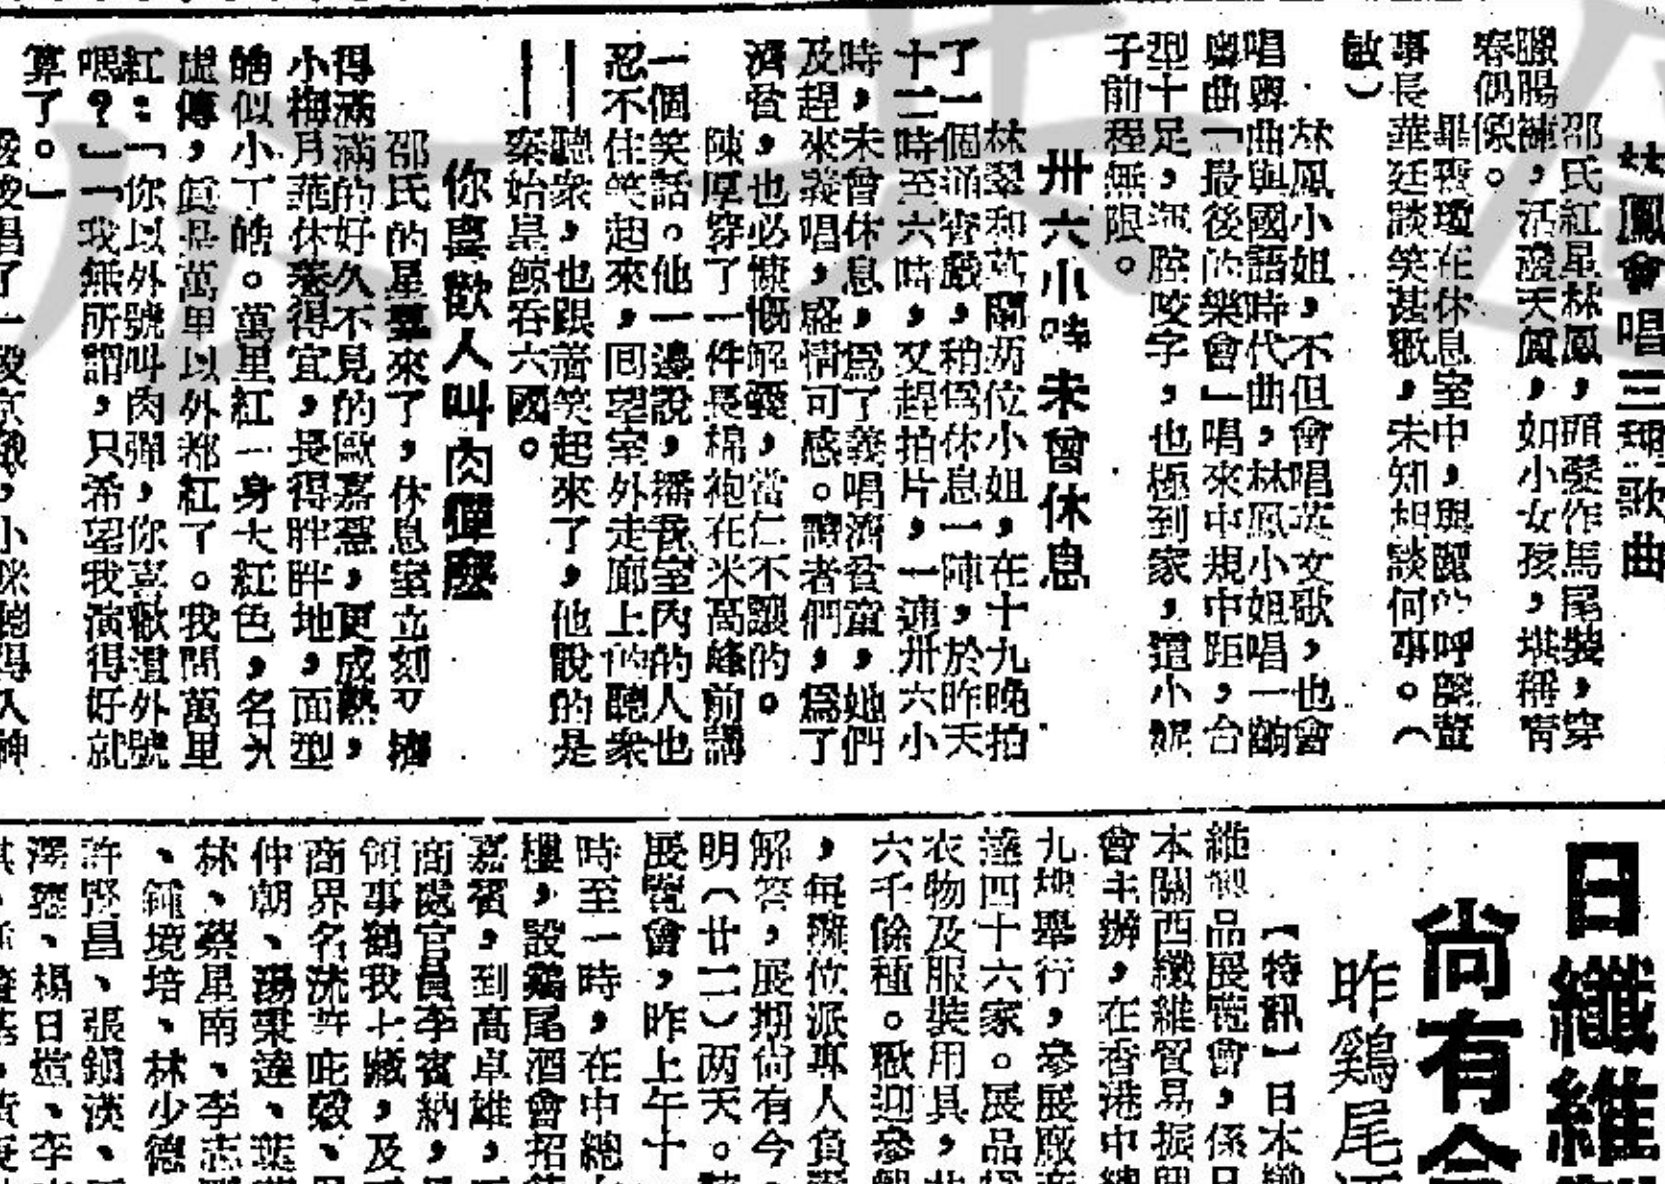 林鳳會唱三種歌曲
邵氏紅星林鳳，頭髮作馬尾裝，穿
臘腸褲，活潑天眞，如小女孩，堪稱青
春偶像。
畢霞瓊在休息室中，與麗的呼聲董
事長華廷談笑甚歡，未知相談何事。（
敏）
林鳳小姐，不但會唱英文歌，也會
唱粵曲與國語時代曲，林鳳小姐唱一齣
粵曲「最後的樂會」唱來中規中距，合
型十足，運腔咬字，也極到家，這小妮
子前程無限。
卅六小時未曾休息
林翠和葛蘭兩位小姐，在十九晚拍
了一個通宵戲，稍爲休息一陣，於昨天
十二時至六時，又趕拍片，一連卅六小
時，未曾休息，爲了義唱濟貧童，她們
及趕來義唱，盛情可感。讀者們，爲了
濟貧，也必慷慨解囊，當仁不讓的。
陳厚穿了一件長棉袍在米高峰前講
一個笑話。他一邊說，播音室內的人也
忍不住笑起來，回望室外走廊上的聽衆
——聽衆，也跟着笑起來了，他說的是
——秦始皇鯨吞六國。
你喜歡人叫肉彈麼
邵氏的星羣來了，休息室立刻
得滿滿的好久不見的歐嘉慧，更成熟，
小梅月華休養得宜，長得胖胖地，面型
皓似小丁皓。萬里紅一身大紅色，名不
虛傳，眞是萬里以外都紅了。我問萬里
紅：「你以外號叫肉彈，你喜歡這外號
嗎？」「我無所謂，只希望我演得好就
算了。」
唱了一段京戲，小咪聽得入神
日纖維
尚有今
昨鷄尾酒
【特訊】日本纖
維製品展覽會，係日
本關西纖維貿易振興
會主辦，在香港中總
九樓舉行，參展廠商
達四十六家。展品
衣物及服裝用具，共
六千餘種。歡迎參觀
，每攤位派專人負責
解答，展期尚有今、
明（廿二）两天。該
展覽會，昨上午十
時至一時，在中總
樓，設鷄尾酒會招待
嘉賓，到高卓雄，
商處官員李賓納，
領事鶴我七藏，及
商界名流許庇穀、
仲朝、湯秉達、葉
林、蔡星南、李志
、鍾境培、林少德
許賢昌、張鎮漢、
楊日煊、李